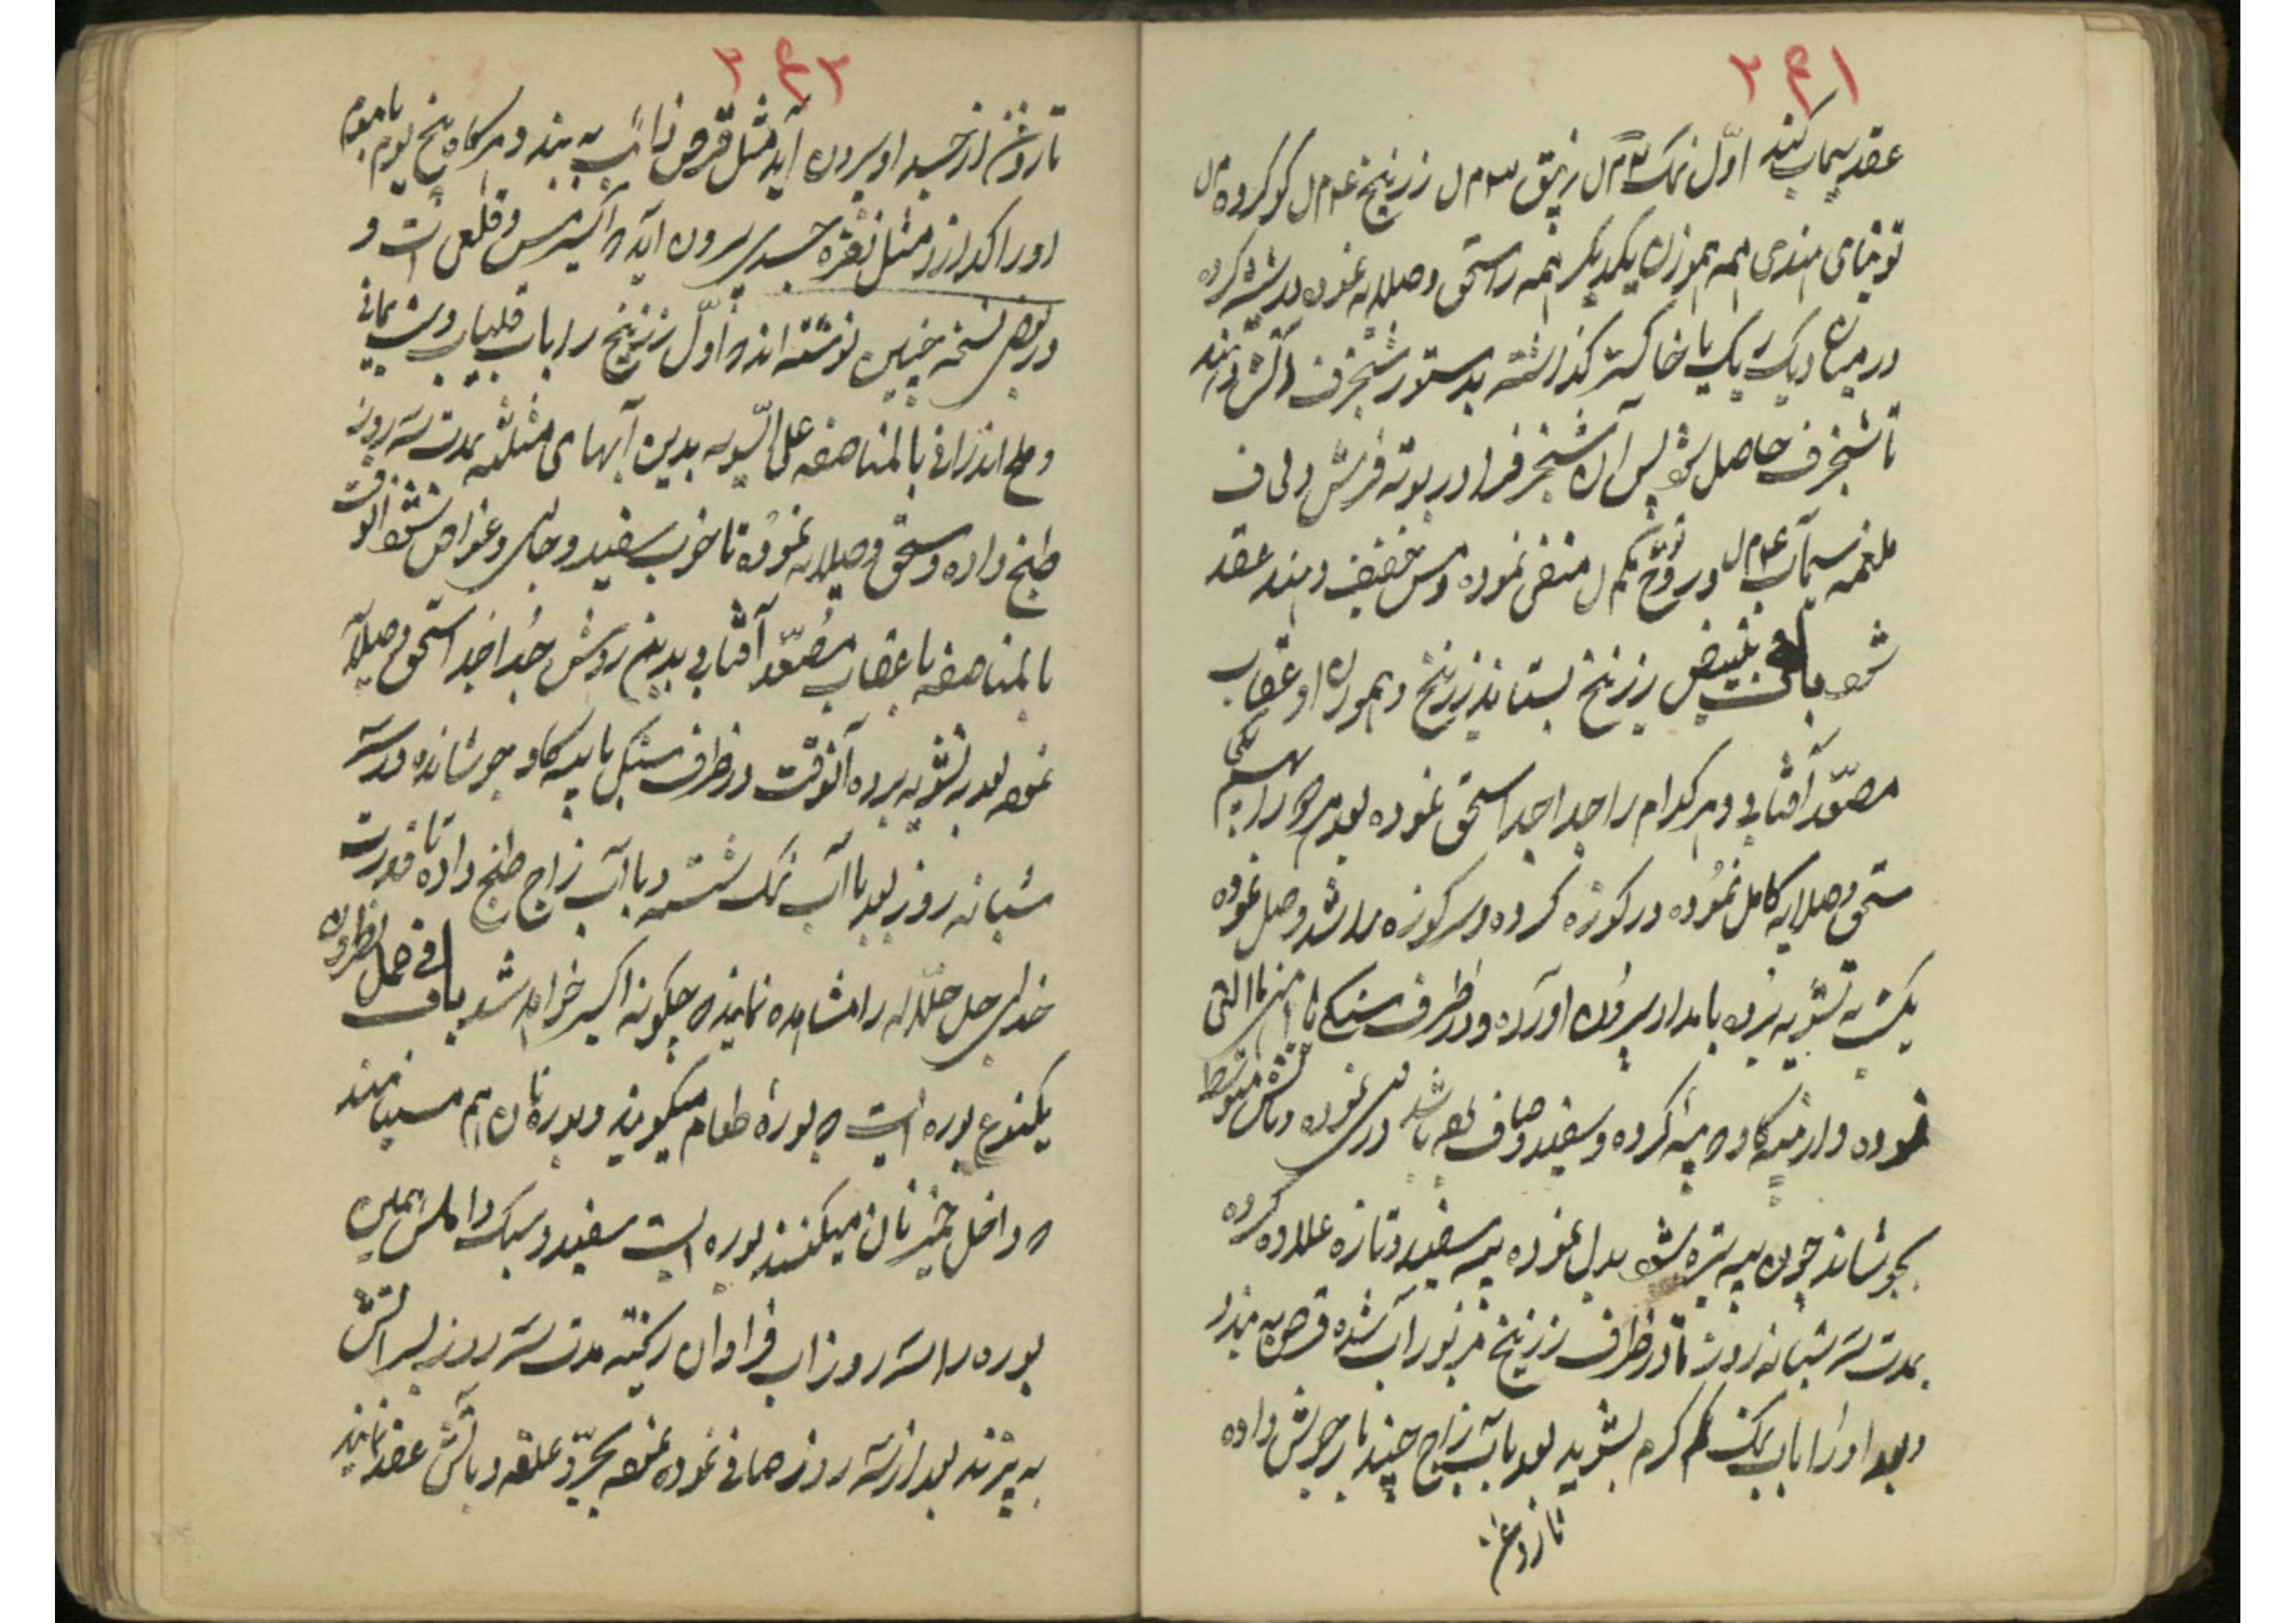 ۲۶۱
عقد سیماب کند اول نمک ۳م ل زیبق ۳م ل زرنیخ ۴م ل کوکرد ه م ل
توتیای هندی همه هموزن یکدیکر همه را سحق و صلایه نموده در شیشه کرده
در میان دیک ریک یا خاکستر کذاشته بدستور شنجرف آتش دهند
تا شنجرف حاصل شود پس آن شنجرف را در بوته فرش و لحاف
ملغمه سیماب ۴م ل و روح توتیا ۲م ل منقی نموده دمس خفیف دهند عقد
شود باب فی تبییض زرنیخ بستاند زرنیخ و هموزن او عقاب
مصعد آفتابی و هر کدام را جدا جدا سحق نموده بعد هر دو را بهم یکی
سحق و صلایه کامل نموده در کوزه کرده و سر کوزه را سد وصل نموده
یکشب به تشویه برده بامداد بیرون آورده و در ظرف سنکی یا
نموده و از پیه کاو که پیه کرده و سفید و صاف بوده باشد در نموده و بآتش متوسط
بجوشاند چون پیه تیره شود بدل نموده پیه سفید و تازه علاوه کرده
بمدت سه شبانه روز تا در ظرف زرنیخ مزبور آب شده قرص به بندد
و بعد او را بآب نمک کرم بشوید بعد بآب زاج چند بار جوش داده
تا روغن
۲۶۲
تا روغن از جسد او بیرون آید مثل قرص ذائب به بندد و هرکاه پنج یوم با موم
او را کدازد مثل نقره جسدی بیرون آید که اکسیر مس و قلعی است و
در بعض نسخه چنین نوشته اند که اول زرنیخ را بآب قلیاب و شب یمانی
و ملح اندرانی بالمناصفه علی السویه بدین آبهای مثلثه بمدت سه روز
طبخ داده و سحق و صلایه نموده تا خوب سفید و جلی و غواص شود آنوقت
بالمناصفه با عقاب مصعد آفتابی بدین روش جدا جدا سحق و صلایه
نموده بعد به تشویه برده آنوقت در ظرف سنکی با پیه کاو جوشانده در سه
شبانه روز بعد با آب نمک شسته و با آب زاج طبخ داده تا قدرت
خدای جل جلاله را مشاهده نمایند که چکونه اکسیر خواهد شد باب فی حمل نطرون
یکنوع بوره ایست که بورۀ طعام میکویند و بورۀ نان هم مینامند
که داخل خمیر نان میکنند بوره ایست سفید و سبک و املس
بوره را سه روز آب فراوان ریخته مدت سه روز بر آتش
به پزند بعد از سه روز صافی نموده نموده بجر و علقه و بآتش عقد نمایند